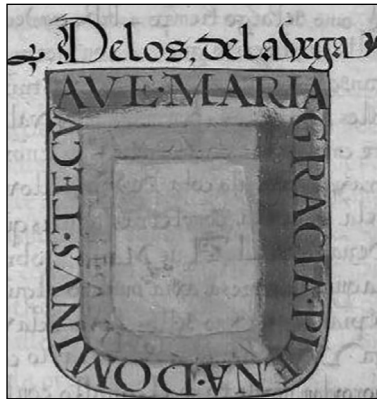 De los, de la Vega
AVE·MARIA
GRACIA·PLENA·DOMINVS·TECV